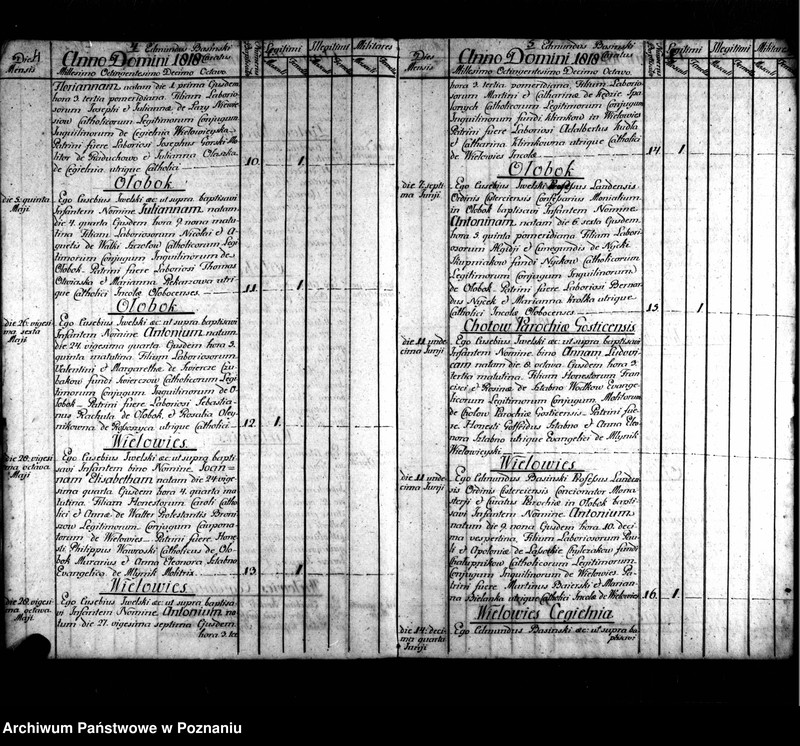 4 Edmundus Basinski Curatus
Die Mensis
Anno Domini 1818
Legitimi Illegitimi Militares
Millesimo Octingentesimo Decimo Octavo
Floriannam natam die 1 prima Ejusdem
hora 3 tertia pomeridiana. Filiam Laborio-
sorum Josephi et Juliannæ de
Catholicorum Legitimorum Conjugum
Inquilinorum de Cegielnia Wielowieyska.
Patrini fuere Laboriosi Josephus Gorski
et Julianna
de Cegielnia utrique Catholici 10. 1.
Ołobok
die 5. quinta Maji
Ego Eusebius Iwelski &c: ut supra baptisavi
Infantem Nomine Juliannam natam
die 4. quarta Ejusdem hora 9. nona matu
tina Filiam Laboriosorum Nicolai et A-
gnetis de Walki Catholicorum Legi
timorum Conjugum Inquilinorum de
Ołobok. Patrini fuere Laboriosi Thomas
et Marianna utri-
que Catholici Incolæ Olobocenses 11. 1.
Ołobok
die 26. vigesi
ma sexta
Maji
Ego Eusebius Iwelski &c: ut supra baptisavi
Infantem Nomine Antonium natum
die 24. vigesima quarta Ejusdem hora 5.
quinta matutina. Filium Laboriosorum
Valentini et Margarethæ de Swiercze
fundi Catholicorum Legi
timorum Conjugum Inquilinorum de O-
łobok. Patrini fuere Laboriosi Sebastia-
nus Rachuta de Ołobok et Rosalia Oley-
nikowna de utrique Catholici 12. 1.
Wielowies
die 28. vigesi
ma octava
Maji
Ego Eusebius Iwelski &c: ut supra bapti-
savi Infantem bino Nomine Joan=
nam Elisabetham natam die 24 vige-
sima quarta Ejusdem hora 4. quarta ma
tutina. Filiam Honestorum Caroli Catho
lici et Annæ de Walter Protestantis
Legitimorum Conjugum Caupona-
torum de Wielowies. Patrini fuere Hone
sti Philippus Catholicus de Oło-
bok Murarius et Anna Eleonora Sztabno
Evangelica de Mlynik 13. 1.
Wielowies
die 28. vigesi
ma octava
Maji
Ego Eusebius Iwelski &c: ut supra baptisa-
vi Infantem Nomine Antonium na
tum die 27. vigesima septima Ejusdem
hora 3. ter
5 Edmundus Basinski Curatus
Dies Mensis
Anno Domini 1818
Legitimi Illegitimi Militares
Millesimo Octingentesimo Decimo Octavo
hora 3. tertia pomeridiana, Filium Laborio-
sorum Martini et Catharinæ de
Catholicorum Legitimorum Conjugum
Inquilinorum fundi Klimkow in Wielowies
Patrini fuere Laboriosi Adalbertus Kudla
et Catharina Klimkowna utrique Catholici
de Wielowies Incolæ 14. 1.
Ołobok
die 7. septi
ma Junji
Ego Eusebius Iwelski Professus Landensis
Ordinis Cisterciensis Confessarius Monialium
in Olobok baptisavi Infantem Nomine
Antoninam natam die 6. sexta Ejusdem
hora 5. quinta pomeridiana. Filiam Labori-
osorum Ægidji et Cunegundis de Nycki
Stupniakow fundi Nyckow Catholicorum
Legitimorum Conjugum Inquilinorum
de Ołobok. Patrini fuere Laboriosi Bernar
dus Nycek et Marianna Krolka utrique
Catholici Incolæ Olobocenses 15. 1.
Chotow Parochiæ Gosticensis
die 11. unde
cima Junji
Ego Eusebius Iwelski &c: ut supra baptisavi
Infantem Nomine bino Annam Ludovi-
cam natam die 8. octava Ejusdem hora 3.
tertia matutina. Filiam Honestorum Fran
cisci et Rosinæ de Sztabno Evange-
licorum Legitimorum Conjugum Molitorum
de Chotow Parochiæ Gosticensis. Patrini fue-
re Honesti Sztabno et Anna Eleo
nora Sztabno utrique Evangelici de Mlynik
Wielowieyski
Wielowies
die 11. unde
cima Junji
Ego Edmundus Basinski Professus Landen-
sis Ordinis Cisterciensis Concionator Mona
sterji et Curatus Parochiæ in Olobok bapti-
savi Infantem Nomine Antonium
natum die 9. nona Ejusdem hora 10. deci
ma vespertina, Filium Laboriosorum Pau-
li et Apoloniæ de fundi
Chałupnikow Catholicorum Legitimorum
Conjugum Inquilinorum de Wielowies. Pa-
trini fuere Martinus Basinski et Marian-
na Bielanka utrique Catholici Incolæ de Wielowies 16. 1.
Wielowies Cegielnia
die 14. deci
ma quarta
Junji
Ego Edmundus Basinski &c: ut supra ba
ptisavi
Archiwum Państwowe w Poznaniu